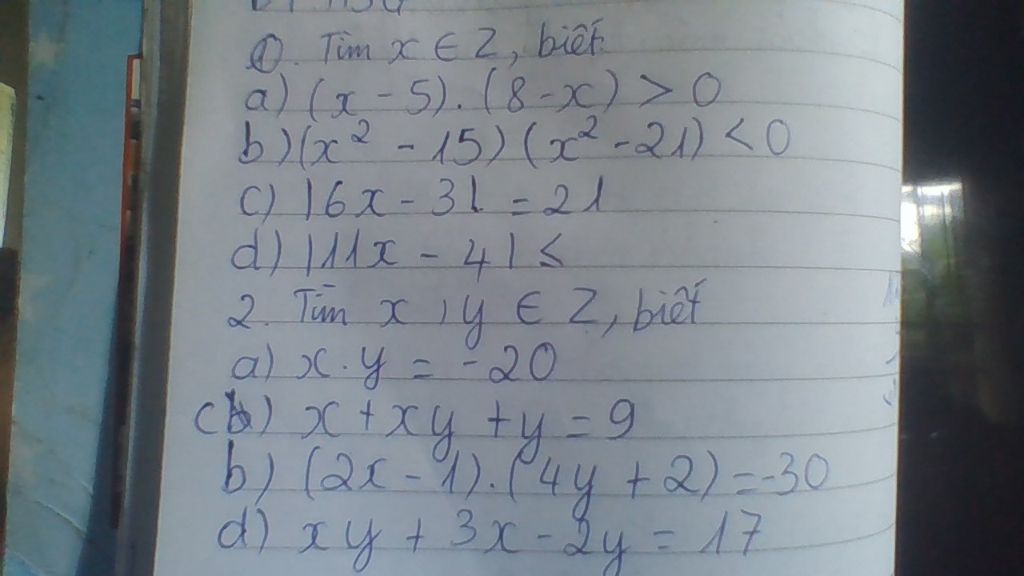 ①. Tìm x ∈ Z, biết:
a) (x - 5). (8 - x) > 0
b) (x² - 15) (x² - 21) < 0
c) |6x - 3| = 21
d) |11x - 4| ≤
2. Tìm x, y ∈ Z, biết
a) x. y = -20
c) x + xy + y = 9
b) (2x - 1). (4y + 2) = -30
d) xy + 3x - 2y = 17